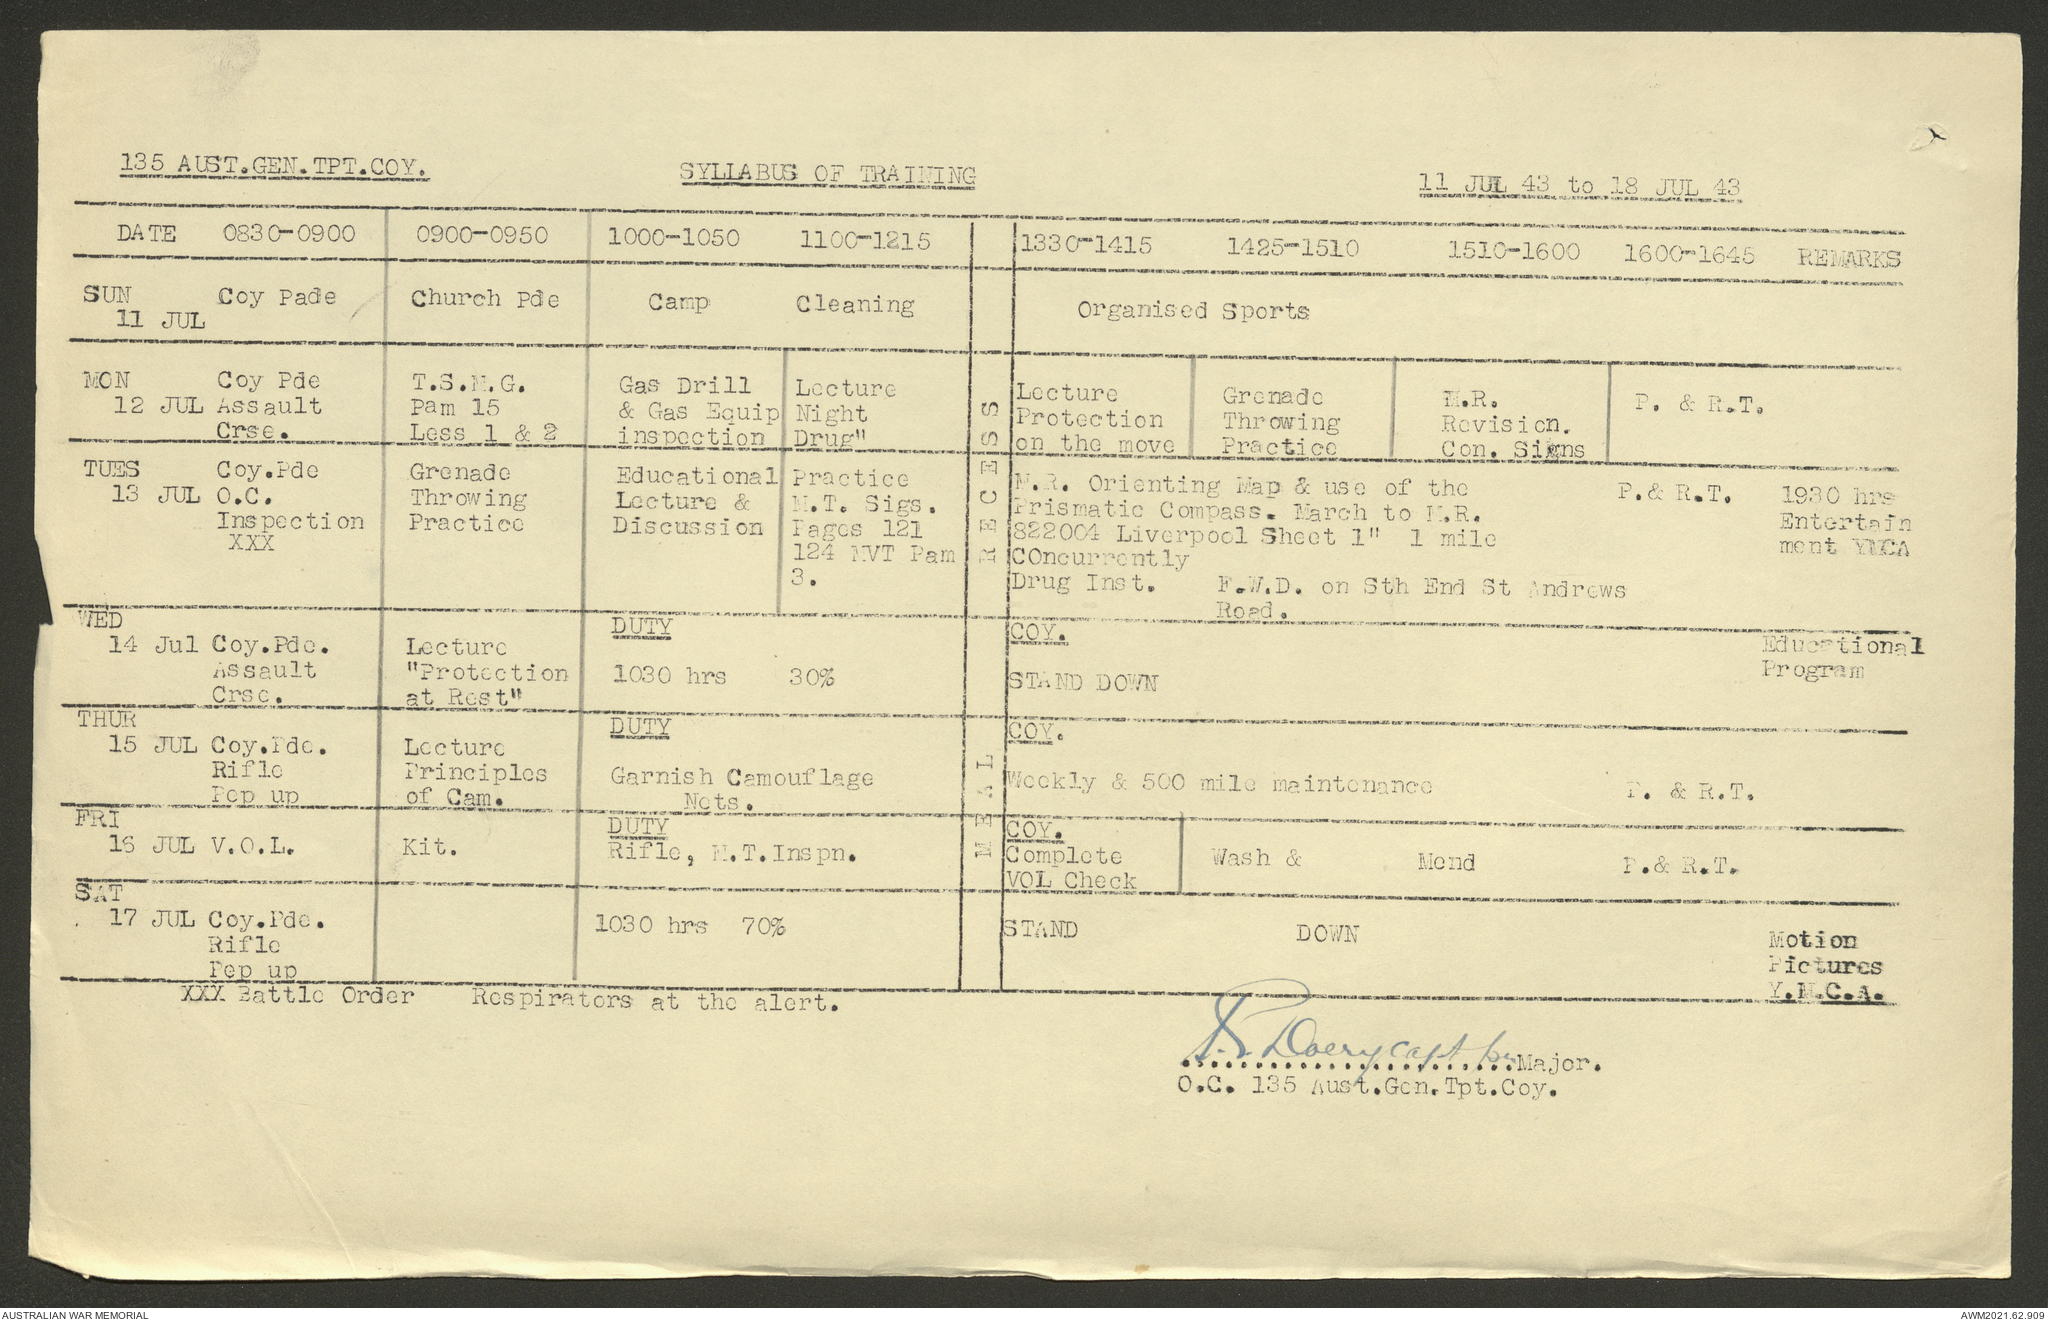 135 AUST.GEN.TPT.COY. SYLLABUS OF TRAINING 11 JUL 43 to 18 JUL 43
DATE 0830-0900 0900-0950 1000-1050 1100-1215 1330-1415 1425-1510 1510-1600 1600-1645 REMARKS
SUN Coy Pade Church Pde Camp Cleaning Organised Sports
11 JUL
MON Coy Pde T.S.M.G. Gas Drill Lecture Lecture Grenade M.R. P. & R.T.
12 JUL Assault Pam 15 & Gas Equip Night Protection Throwing Revision.
Crse. Less 1 & 2 inspection Drug" on the move Practice Con. Signs
RECESS
TUES Coy.Pde Grenade Educational Practice M.R. Orienting Map & use of the P.& R.T. 1930 hrs
13 JUL O.C. Throwing Lecture & M.T. Sigs. Prismatic Compass. March to M.R. Entertain
Inspection Practice Discussion Pages 121 822004 Liverpool Sheet 1" 1 mile ment YMCA
XXX 124 MVT Pam COncurrently
3. Drug Inst. F.W.D. on Sth End St Andrews
Road.
WED DUTY COY. Educational
14 Jul Coy.Pde. Lecture Program
Assault "Protection 1030 hrs 30% STAND DOWN
Crse. at Rest"
THUR DUTY COY.
15 JUL Coy.Pde. Lecture
Rifle Principles Garnish Camouflage Weekly & 500 mile maintenance P. & R.T.
Pep up of Cam. Nets.
MEAL
FRI DUTY COY.
16 JUL V.O.L. Kit. Rifle, M.T.Inspn. Complete Wash & Mend P.& R.T.
VOL Check
SAT
17 JUL Coy.Pde. 1030 hrs 70% STAND DOWN Motion
Rifle Pictures
Pep up Y.M.C.A.
XXX Battle Order Respirators at the alert.
Doery capt for Major.
O.C. 135 Aust.Gen.Tpt.Coy.
AUSTRALIAN WAR MEMORIAL AWM2021.62.909